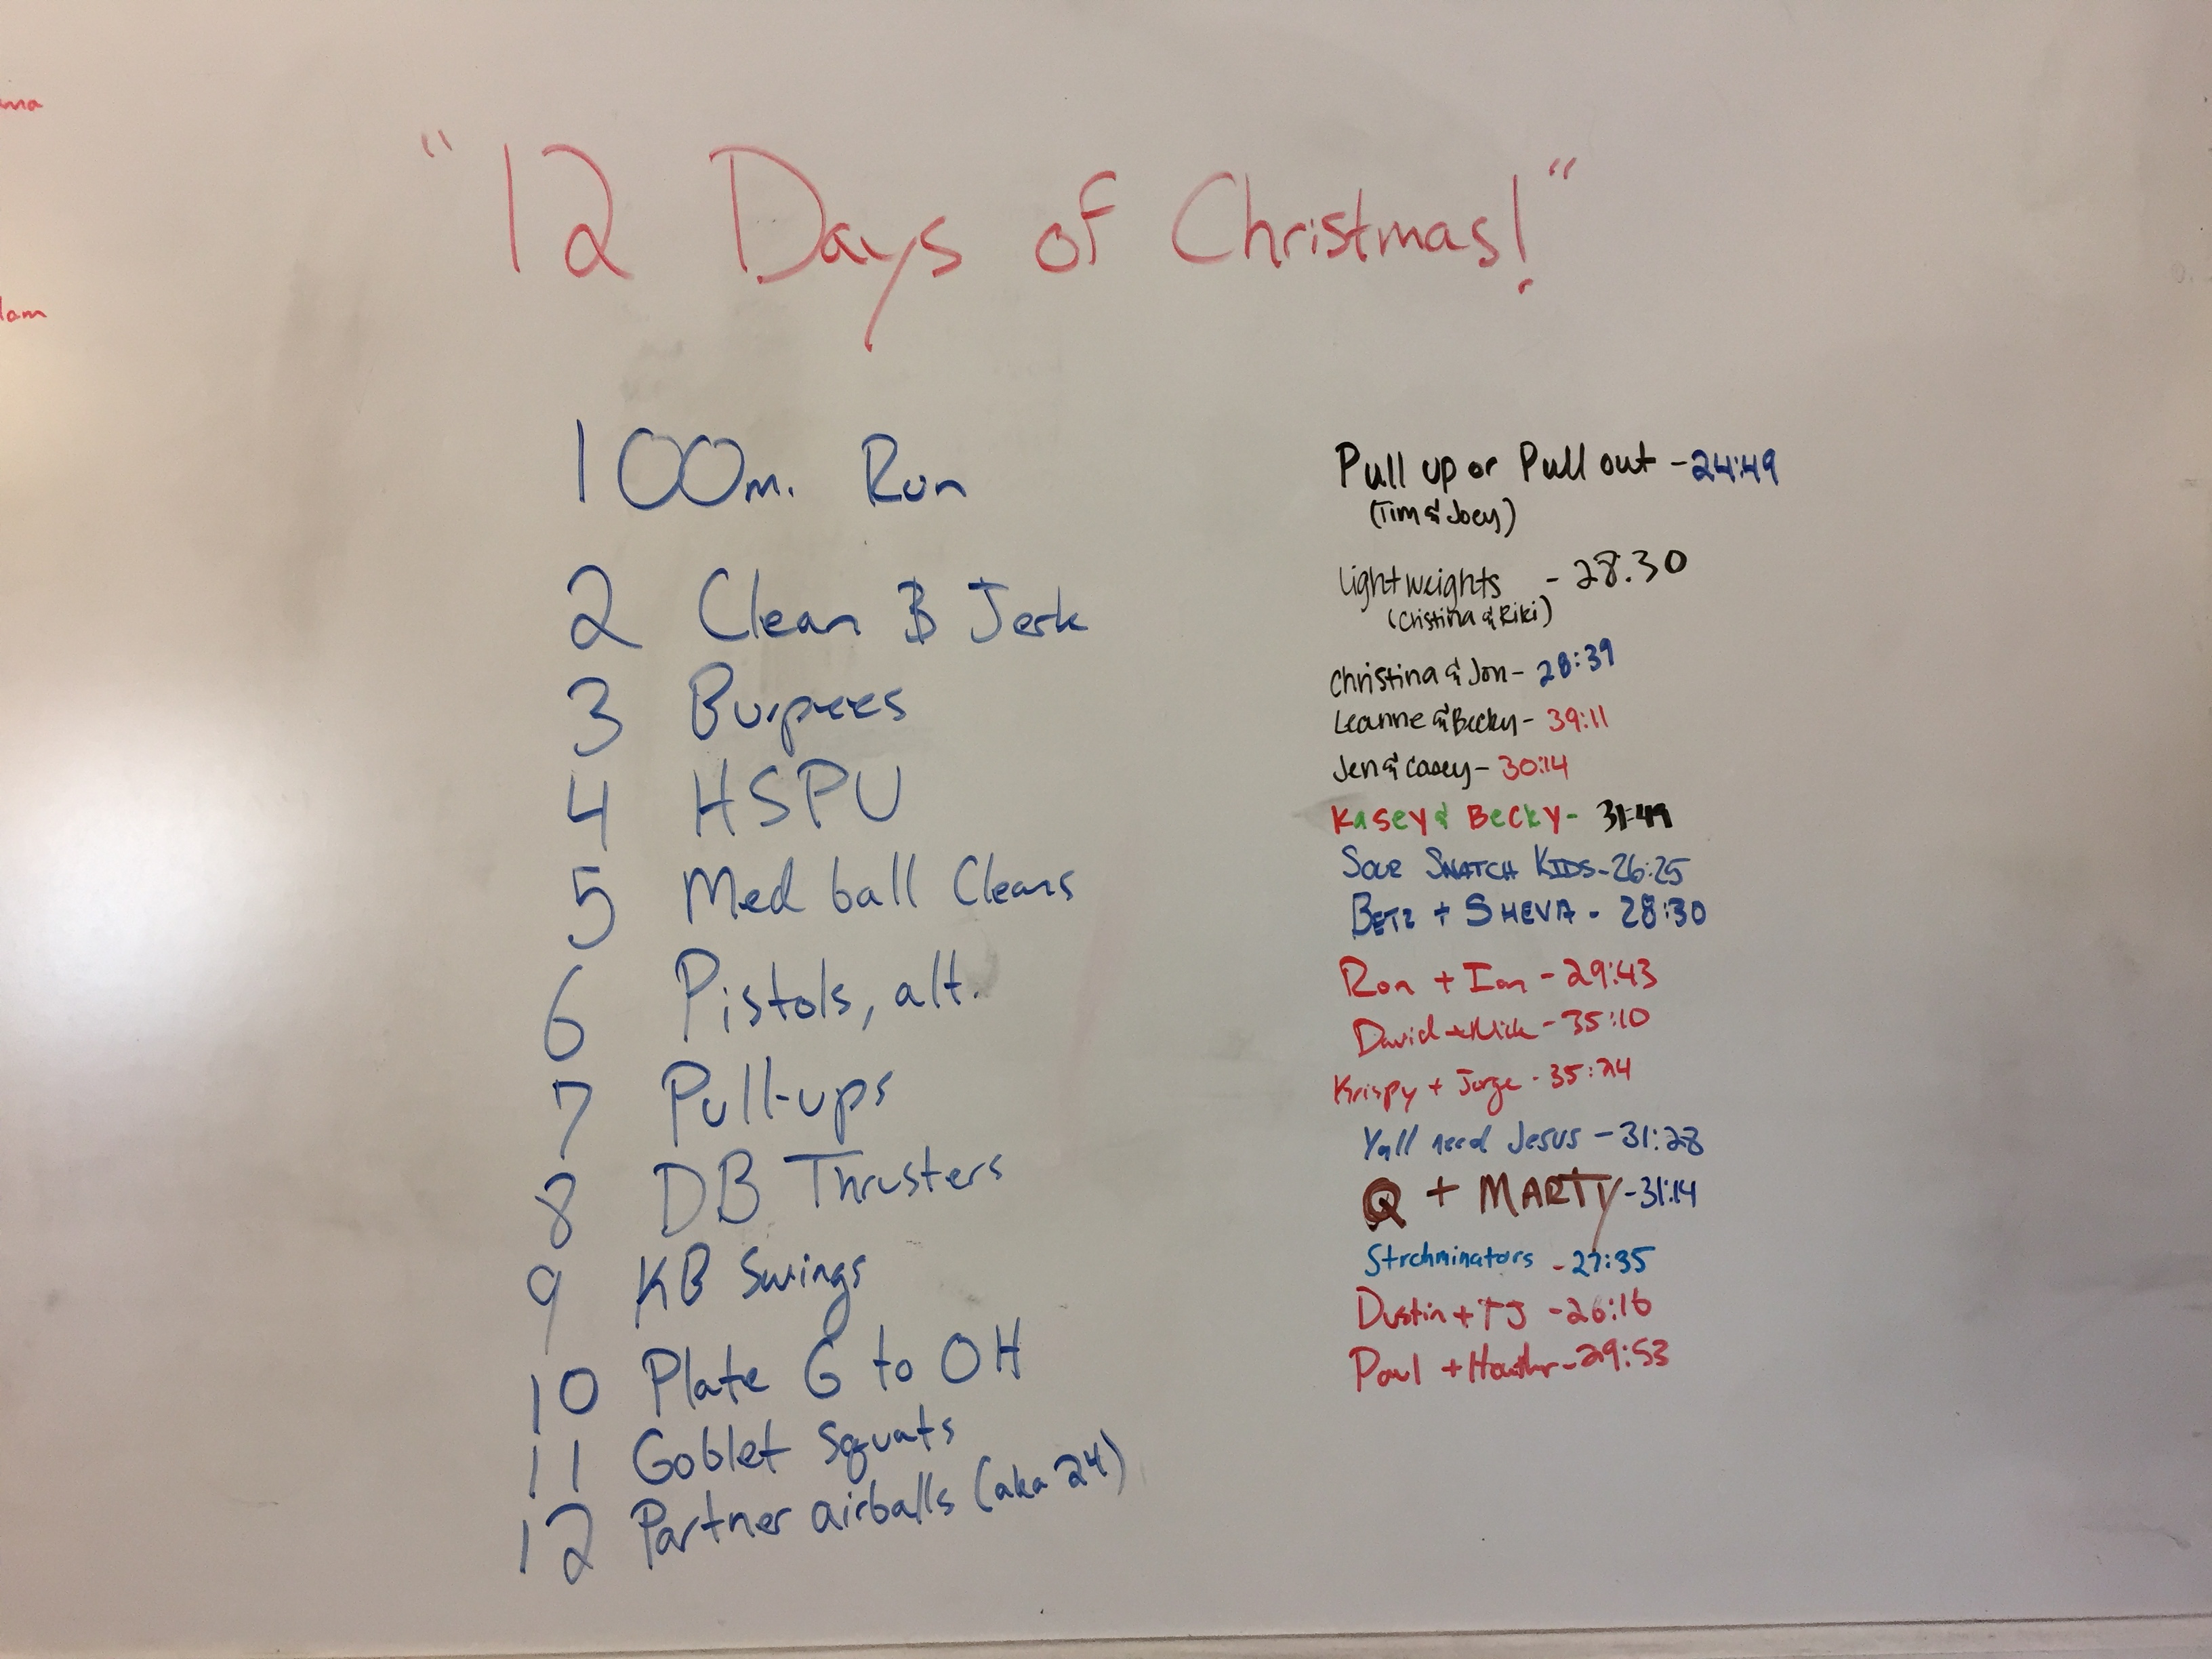 "12 Days of Christmas!"
100m. Run
2 Clean & Jerk
3 Burpees
4 HSPU
5 Med ball Cleans
6 Pistols, alt.
7 Pull-ups
8 DB Thrusters
9 KB Swings
10 Plate G to OH
11 Goblet squats
12 Partner airballs (aka 24)
Pull up or Pull out - 24:49
(Tim & Joey)
Lightweights - 28:30
(Cristina & Riki)
Christina & Jon - 28:39
Leanne & Becky - 39:11
Jen & Casey - 30:14
Kasey & Becky - 31:49
SOUR SNATCH KIDS - 26:25
BETZ + SHEVA - 28:30
Ron + Ian - 29:43
David + Nick - 35:10
Krispy + Jorge - 35:24
Yall need Jesus - 31:28
Q + MARTY - 31:14
Strchminators - 27:35
Dustin + TJ - 26:16
Paul + - 29:53